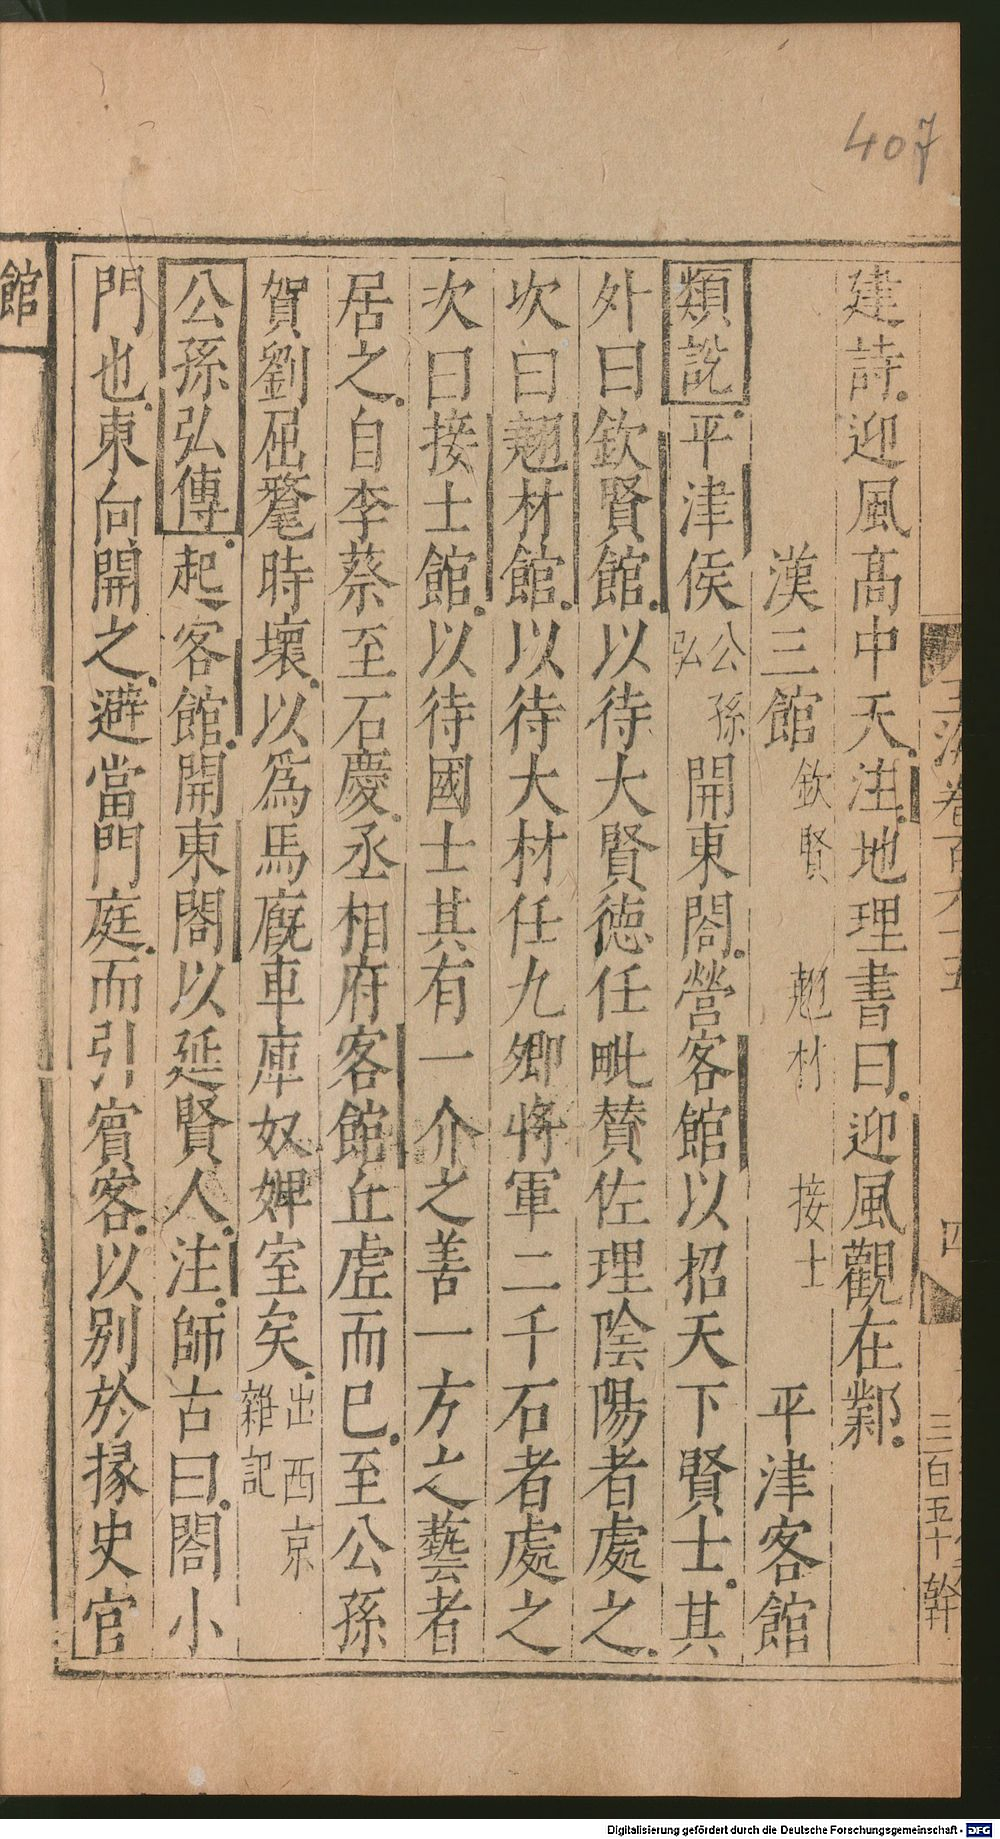 407
建詩迎風高中天注地理書曰迎風觀在鄴
漢三館 欽賢 翹材 接士 平津客館
類說平津侯公孫弘開東閤營客館以招天下賢士其
外曰欽賢館以待大賢德任毗賛佐理陰陽者處之
次曰翹材館以待大材任九卿將軍二千石者處之
次曰接士館以待國士其有一介之善一方之藝者
居之自李蔡至石慶丞相府客館丘虛而已至公孫
賀劉屈氂時壞以爲馬廐車庫奴婢室矣出西京雜記
公孫弘傳起客館開東閤以延賢人注師古曰閤小
門也東向開之避當門庭而引賓客以别於掾史官
館
玉海卷百六十五
四
三百五十
幹
Digitalisierung gefördert durch die Deutsche Forschungsgemeinschaft - DFG